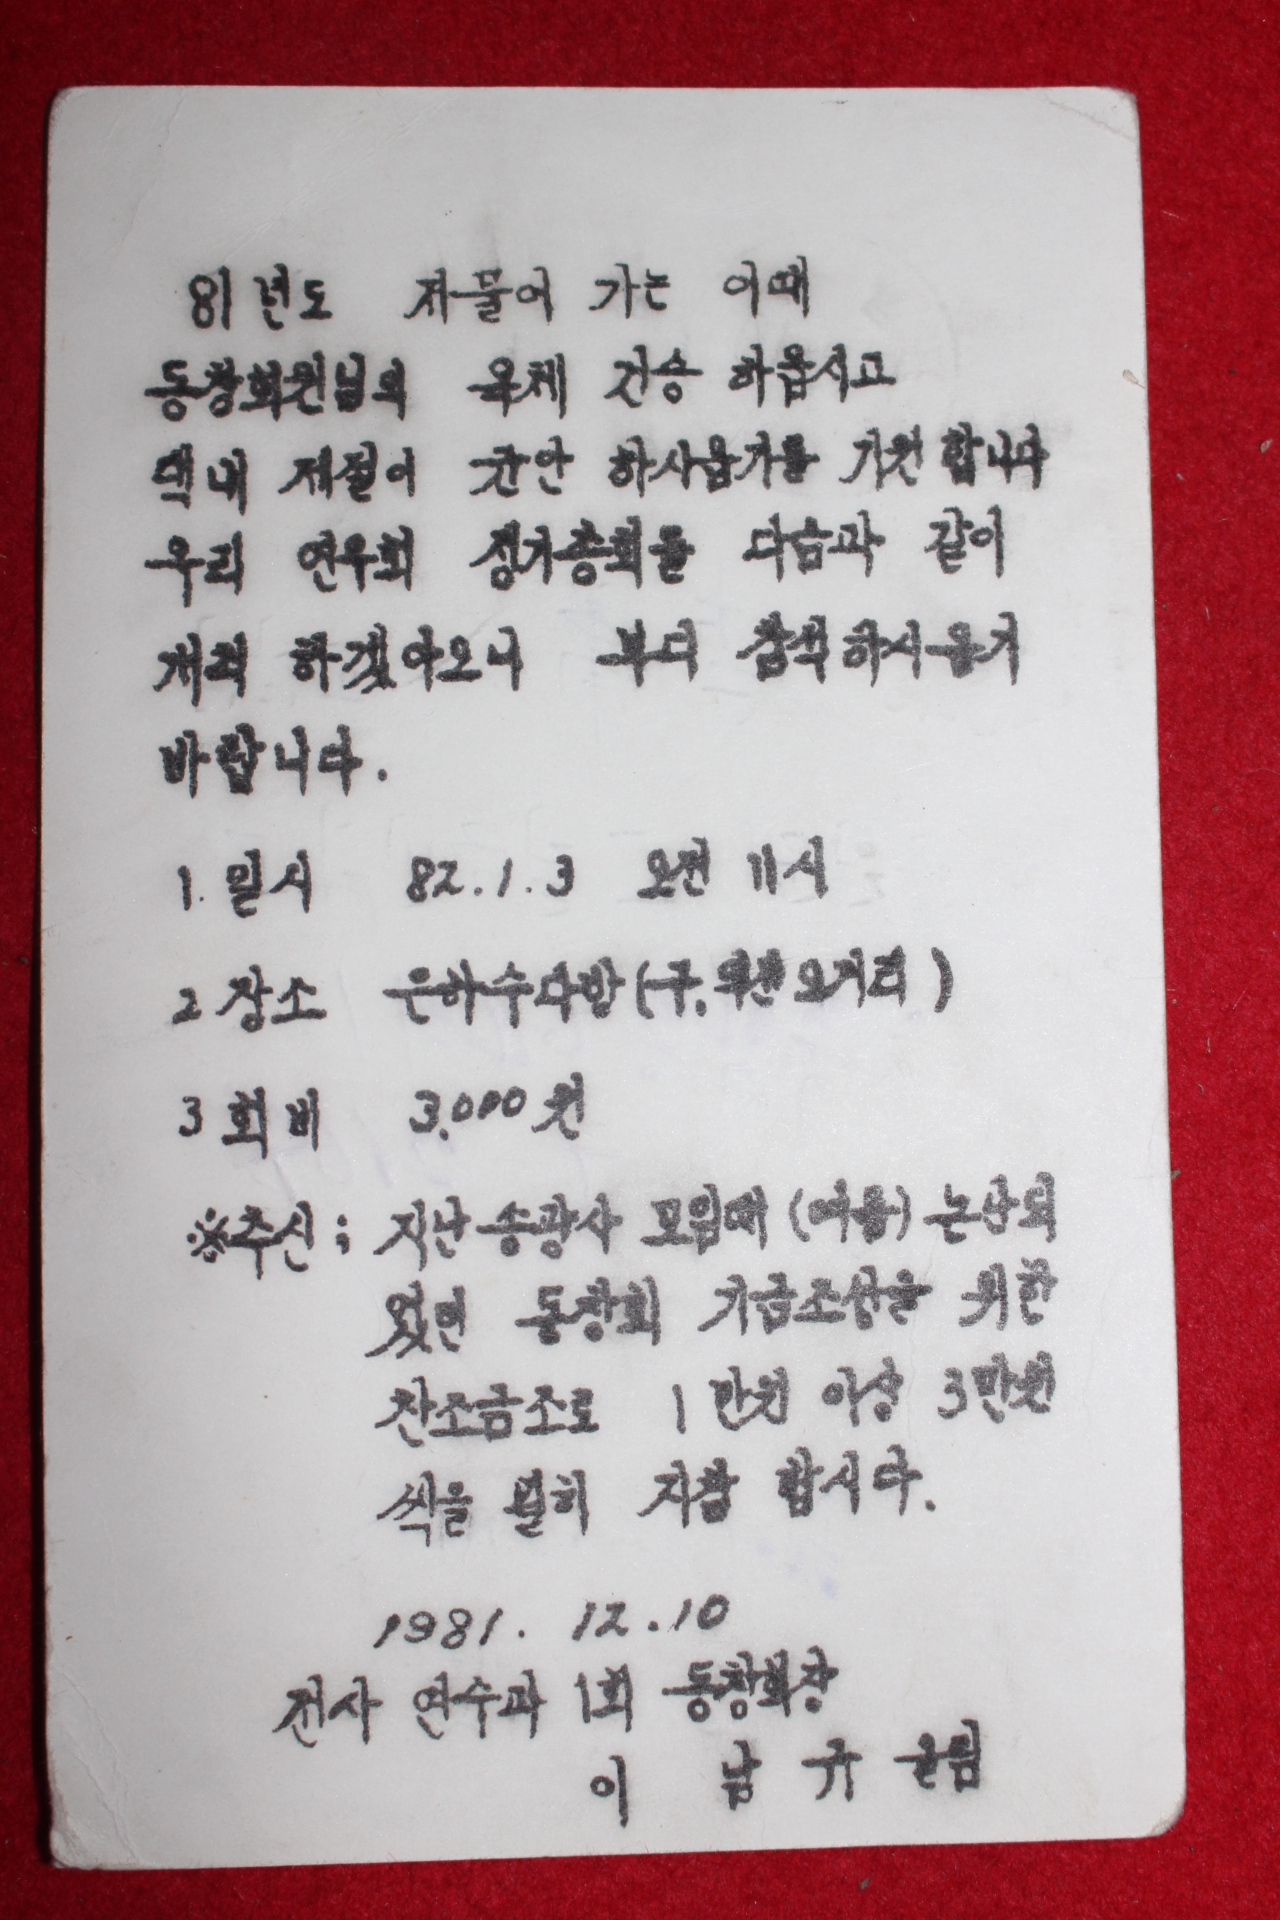 81년도 저물어 가는 이때
동창회원님의 옥체 건승 하옵시고
댁내 제절이 균안 하사옵기를 기원합니다
우리 연우회 정기총회를 다음과 같이
개최 하겠아오니 부디 참석하시옵기
바랍니다.
1. 일시 82.1.3 오전 11시
2 장소 은하수다방(구.역전오거리)
3 회비 3.000원
※추신; 지난 송광사 모임때(여름) 논산되
었던 동창회 기금조성을 위한
찬조금조로 1만원 이상 3만원
씩을 필히 지참 합시다.
1981. 12.10
전사 연수과 1회 동창회장
이 남 규 올림